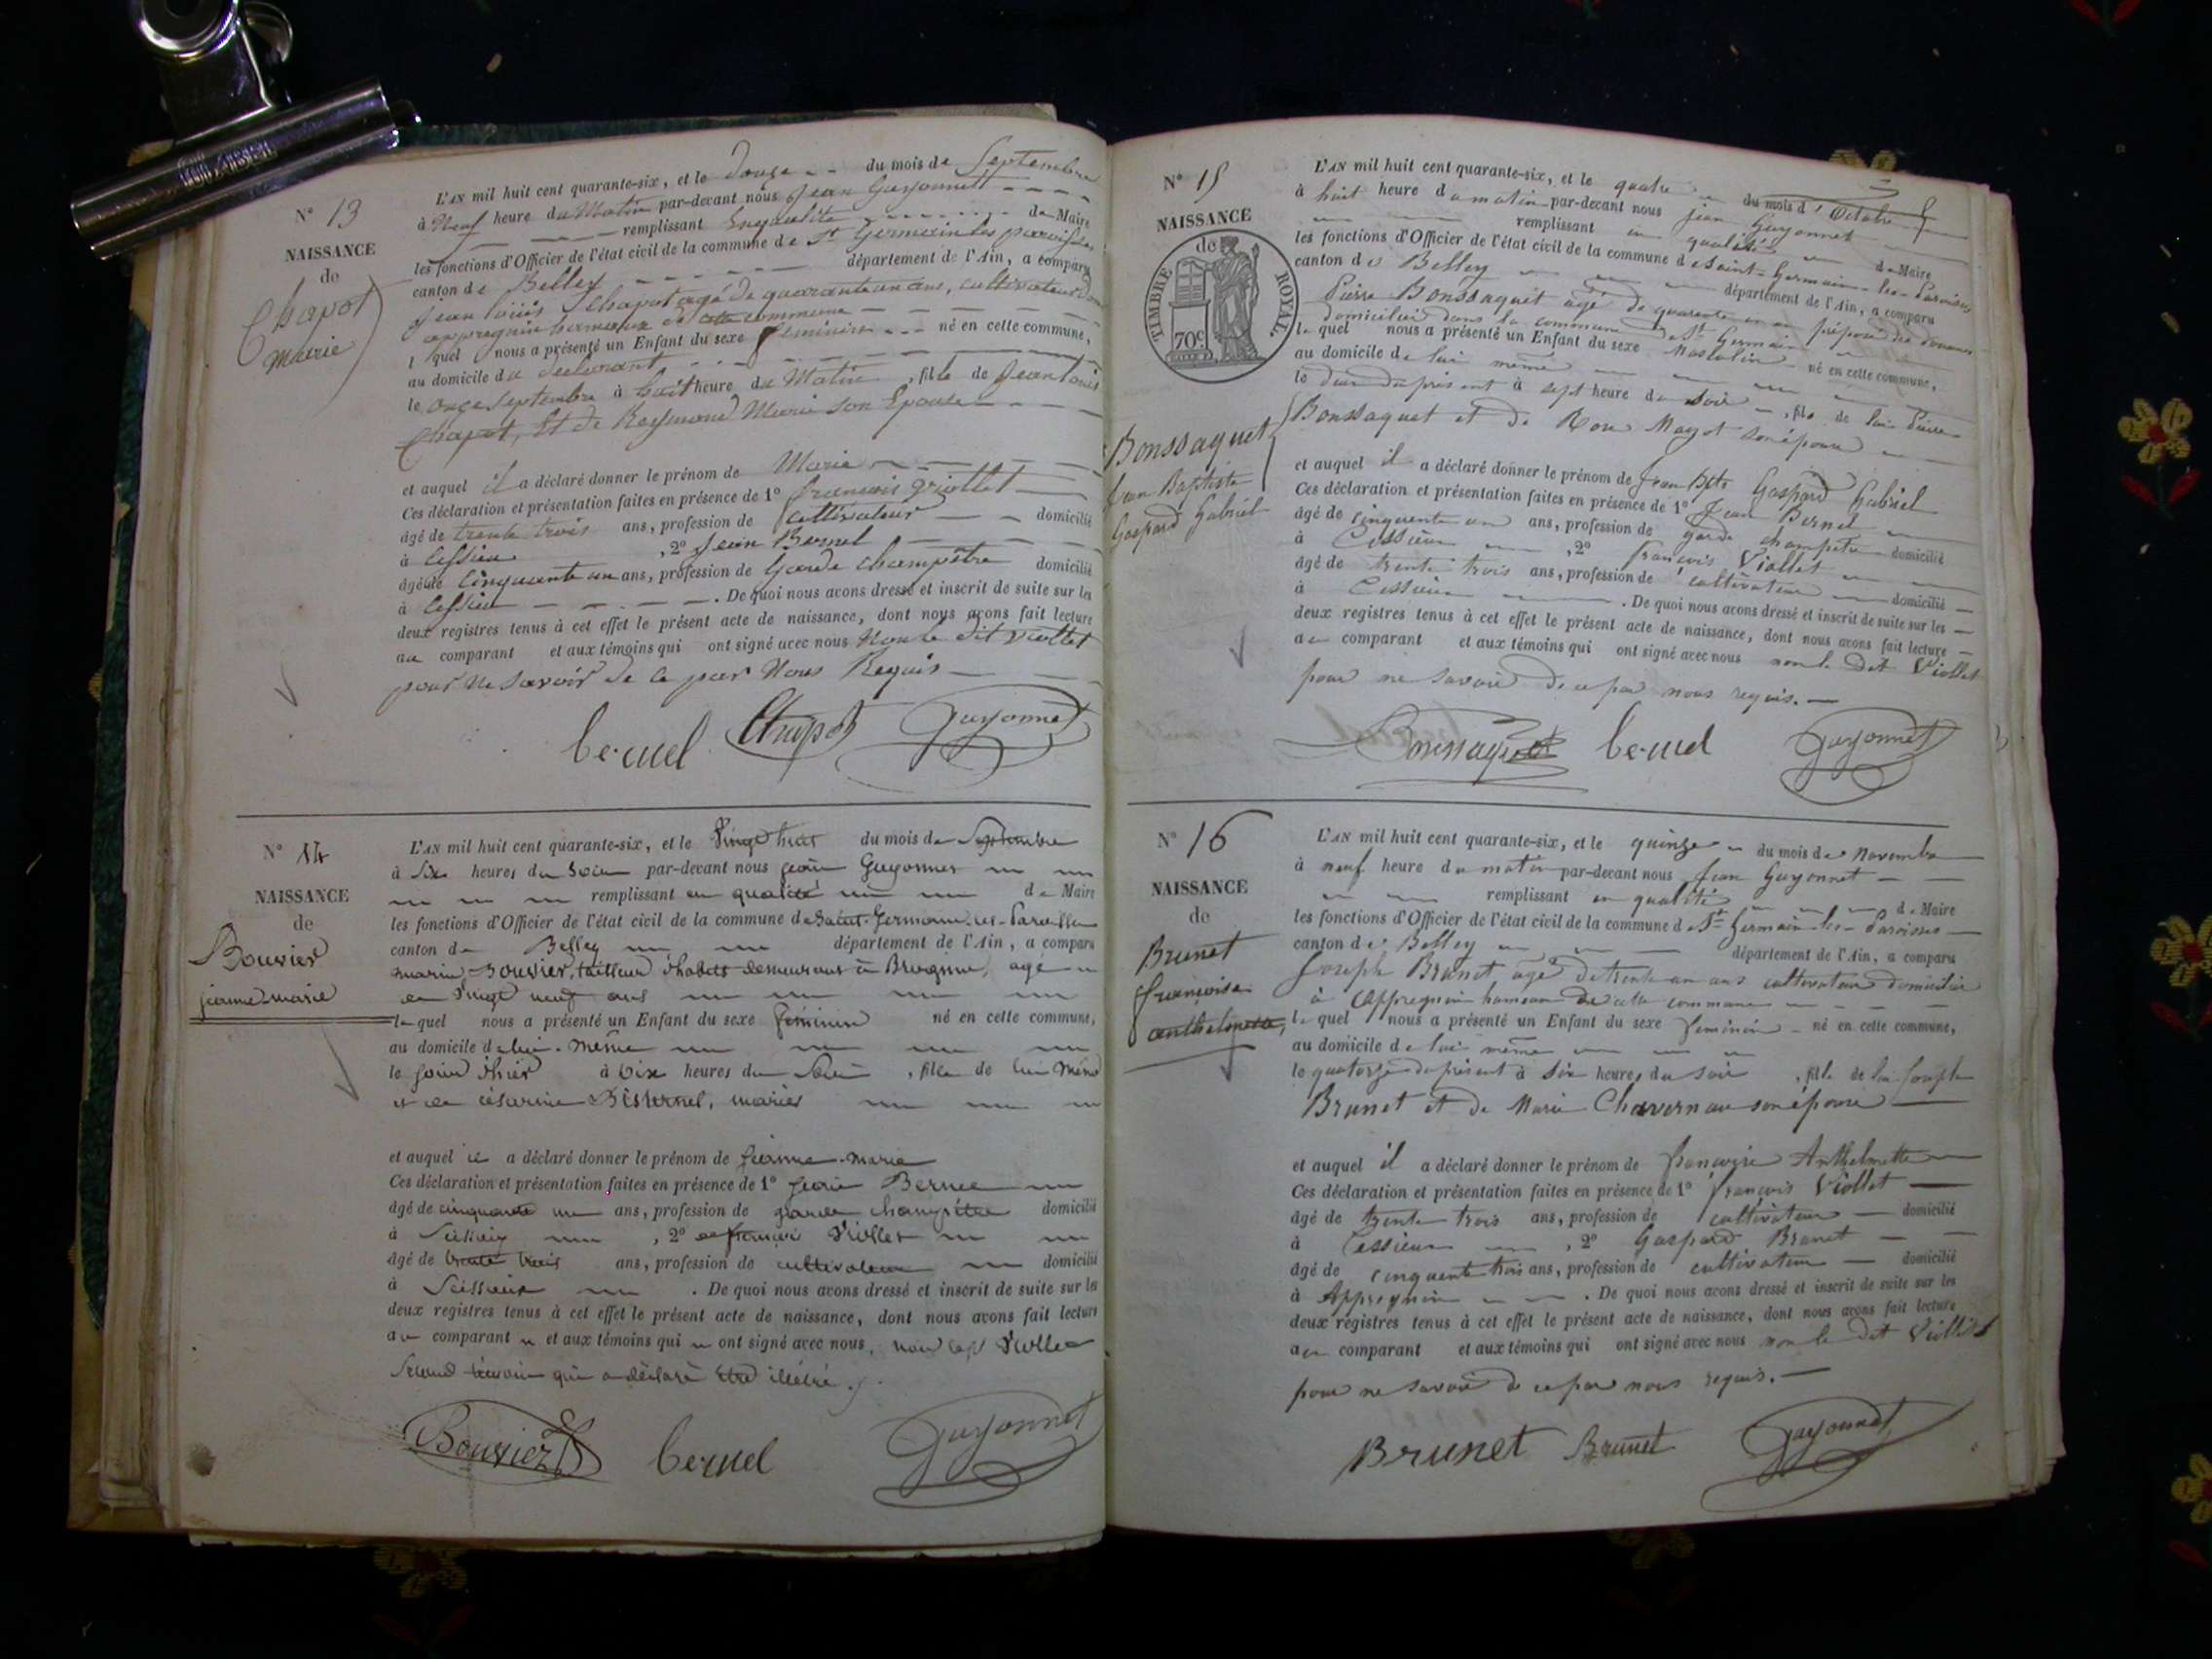 N° 13
NAISSANCE
de
Chapot
marie
L'AN mil huit cent quarante-six, et le douze du mois de Septembre
à Neuf heure du Matin par-devant nous Jean Guyonnet
remplissant En qualité de Maire
les fonctions d'Officier de l'état civil de la commune de St Germain les paroisses
canton de Belley département de l'Ain, a comparu
Jean louis Chapot agé de quarante un ans, cultivateur
appregnin hameau de cette commune
l quel nous a présenté un Enfant du sexe feminin né en cette commune,
au domicile du declarant
le onze septembre à huit heure du Matin, fille de Jean louis
Chapot, Et de Reymond Marie son Epouse
et auquel il a déclaré donner le prénom de Marie
Ces déclaration et présentation faites en présence de 1° francois Viollet
âgé de trente trois ans, profession de Cultivateur domicilié
à Cessieu, 2° Jean Bernel
âgé de Cinquante un ans, profession de Garde champêtre domicilié
à Cessieu. De quoi nous avons dressé et inscrit de suite sur les
deux registres tenus à cet effet le présent acte de naissance, dont nous avons fait lecture
au comparant et aux témoins qui ont signé avec nous Non le dit Viollet
pour Ne Savoir de ce par Nous Requis
bernel Chapot Guyonnet
N° 14
NAISSANCE
de
Bouvier
jeanne-marie
L'AN mil huit cent quarante-six, et le Vingt huit du mois de Septembre
à Six heures du Soir par-devant nous jean Guyonnet
remplissant en qualité de Maire
les fonctions d'Officier de l'état civil de la commune de Saint-Germain-les-Paroisses
canton de Belley département de l'Ain, a comparu
marin Bouvier, tailleur d'habits demeurant à Brognin, agé
de Vingt neuf ans
le quel nous a présenté un Enfant du sexe féminin né en cette commune,
au domicile de lui-même
le jour d'hier à Dix heures du Soir, fille de lui Même
et de césarine mariés
et auquel il a déclaré donner le prénom de jeanne-marie
Ces déclaration et présentation faites en présence de 1° jean Bernel
âgé de cinquante un ans, profession de garde champêtre domicilié
à, 2° de françois Viollet
âgé de trente trois ans, profession de cultivateur domicilié
à Seissieux. De quoi nous avons dressé et inscrit de suite sur les
deux registres tenus à cet effet le présent acte de naissance, dont nous avons fait lecture
au comparant et aux témoins qui ont signé avec nous, non le dit Viollet
Second témoin qui a déclaré être illétré.
Bouvier bernel Guyonnet
N° 15
NAISSANCE
de
TIMBRE ROYAL.
70c
Bonssaquet
Jean Baptiste
Gaspard Gabriel
L'AN mil huit cent quarante-six, et le quatre du mois d'Octobre
à huit heure du matin par-devant nous jean Guyonnet
remplissant en qualité de Maire
les fonctions d'Officier de l'état civil de la commune de Saint-Germain-les-Paroisses
canton de Belley département de l'Ain, a comparu
Pierre Bonssaquet agé de quarante un an préposé des douanes
domicilié dans la commune de St Germain
le quel nous a présenté un Enfant du sexe Masculin né en cette commune,
au domicile de lui même
le deux du présent à sept heure du soir, fils de lui Pierre
Bonssaquet et de Rose Mayot son épouse
et auquel il a déclaré donner le prénom de Jean Bpte Gaspard Gabriel
Ces déclaration et présentation faites en présence de 1° Jean Bernel
âgé de cinquente un ans, profession de garde champetre domicilié
à Cessieux, 2° francois Viollet
âgé de trente trois ans, profession de cultivateur domicilié
à Cessieux. De quoi nous avons dressé et inscrit de suite sur les
deux registres tenus à cet effet le présent acte de naissance, dont nous avons fait lecture
au comparant et aux témoins qui ont signé avec nous non le dit Viollet
pour ne savoir de ce par nous requis.
Bonssaquet bernel Guyonnet
N° 16
NAISSANCE
de
Brunet
françoise
anthelmette
L'AN mil huit cent quarante-six, et le quinze du mois de novembre
à neuf heure du matin par-devant nous Jean Guyonnet
remplissant en qualité de Maire
les fonctions d'Officier de l'état civil de la commune de St Germain-les-Paroisses
canton de Belley département de l'Ain, a comparu
Joseph Brunet agé de trente un ans cultivateur domicilié
à Appregnin hameau de cette commune
le quel nous a présenté un Enfant du sexe feminin né en cette commune,
au domicile de lui même
le quatorze du présent à six heures du soir, fille de lui Joseph
Brunet et de Marie son épouse
et auquel il a déclaré donner le prénom de francoise Anthelmette
Ces déclaration et présentation faites en présence de 1° françois Viollet
âgé de trente trois ans, profession de cultivateur domicilié
à Cessieux, 2° Gaspard Brunet
âgé de cinquente trois ans, profession de cultivateur domicilié
à Appregnin. De quoi nous avons dressé et inscrit de suite sur les
deux registres tenus à cet effet le présent acte de naissance, dont nous avons fait lecture
au comparant et aux témoins qui ont signé avec nous non le dit Viollet
pour ne savoir de ce par nous requis.
Brunet Brunet Guyonnet